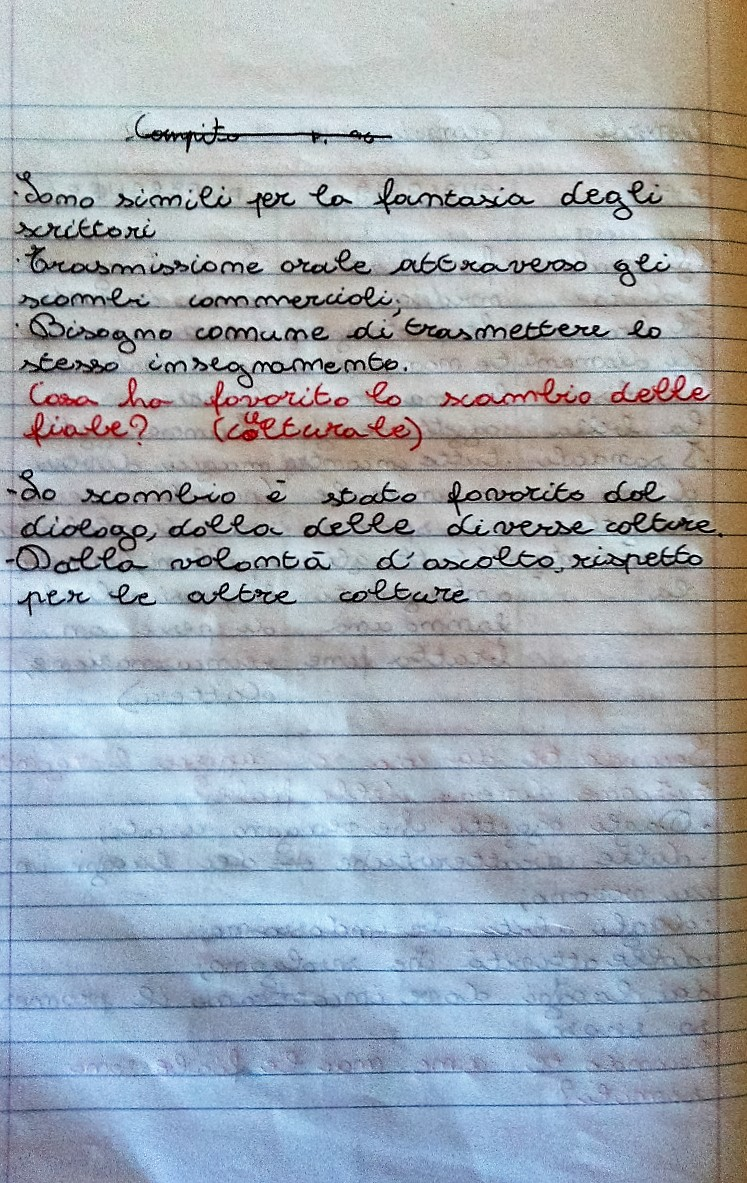 Compito p. 96
·Sono simili per la fantasia degli
scrittori
·Trasmissione orale attraverso gli
scambi commerciali;
·Bisogno comune di trasmettere lo
stesso insegnamento.
Cosa ha favorito lo scambio delle
fiabe? (culturale)
-Lo scambio è stato favorito dal
dialogo, dalla delle diverse colture.
-Dalla volontà d'ascolto, rispetto
per le altre colture